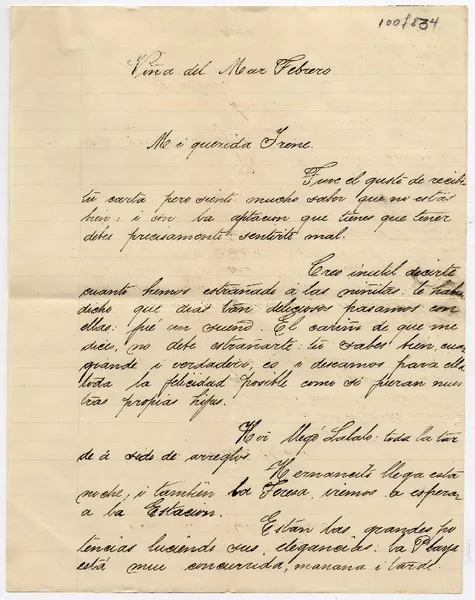 1001834
Viña del Mar Febrero
Mi querida Irene.
Tuve el gusto de recibir
tú carta pero siento mucho saber que no estás
bien: i con la que tienes que tener
debes precisamente sentirte mal.
Creo inutil decirte
cuanto hemos estrañado á las niñitas. te habrán
dicho que dias tan deliciosos pasamos con
ellas: fué un sueño. El cariño de que me
dices, no debe estrañarte: tú sabes bien, cuan
grande i verdadero, es, i deseamos para ellas
toda la felicidad posible como si fueran nues
tras propias hijas.
Hoi llegó Lalalo: toda la tar
de á sido de arreglos.
Hernancito llega esta
noche, i tambien la Teresa, iremos la esperar
a la Estacion.
Están las grandes po
tencias luciendo sus, elegancias: la Playa
está mui concurrida, mañana i tarde.